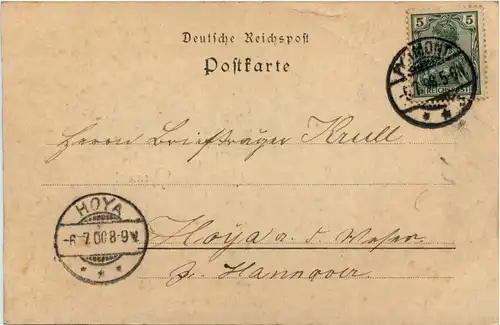 Deutsche Reichspost
Postkarte
5 5
REICHSPOST
Herrn Briefträger Krull
HOYA
-6.7.00 8-9V.
Hoya a. d. Weser
Pr. Hannover.